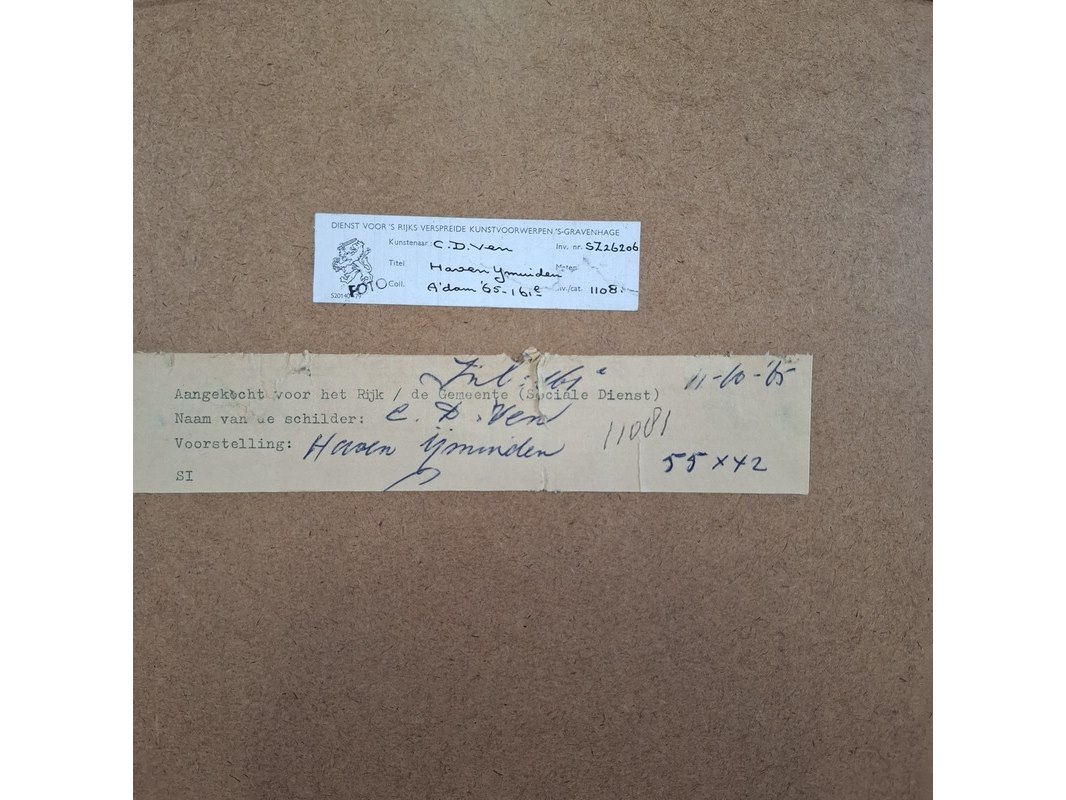 DIENST VOOR 'S RIJKS VERSPREIDE KUNSTVOORWERPEN 'S-GRAVENHAGE
Kunstenaar: C.D. Ven Inv. nr. SZ26206
Titel Haven Ymuiden
FOTO Coll. A'dam '65-161e Inv./cat. 1108.
11-10-'65
Aangekocht voor het Rijk / de Gemeente (Sociale Dienst)
Naam van de schilder: C. D. Ven 11081
Voorstelling: Haven Ijmuiden 55 x 42
SI